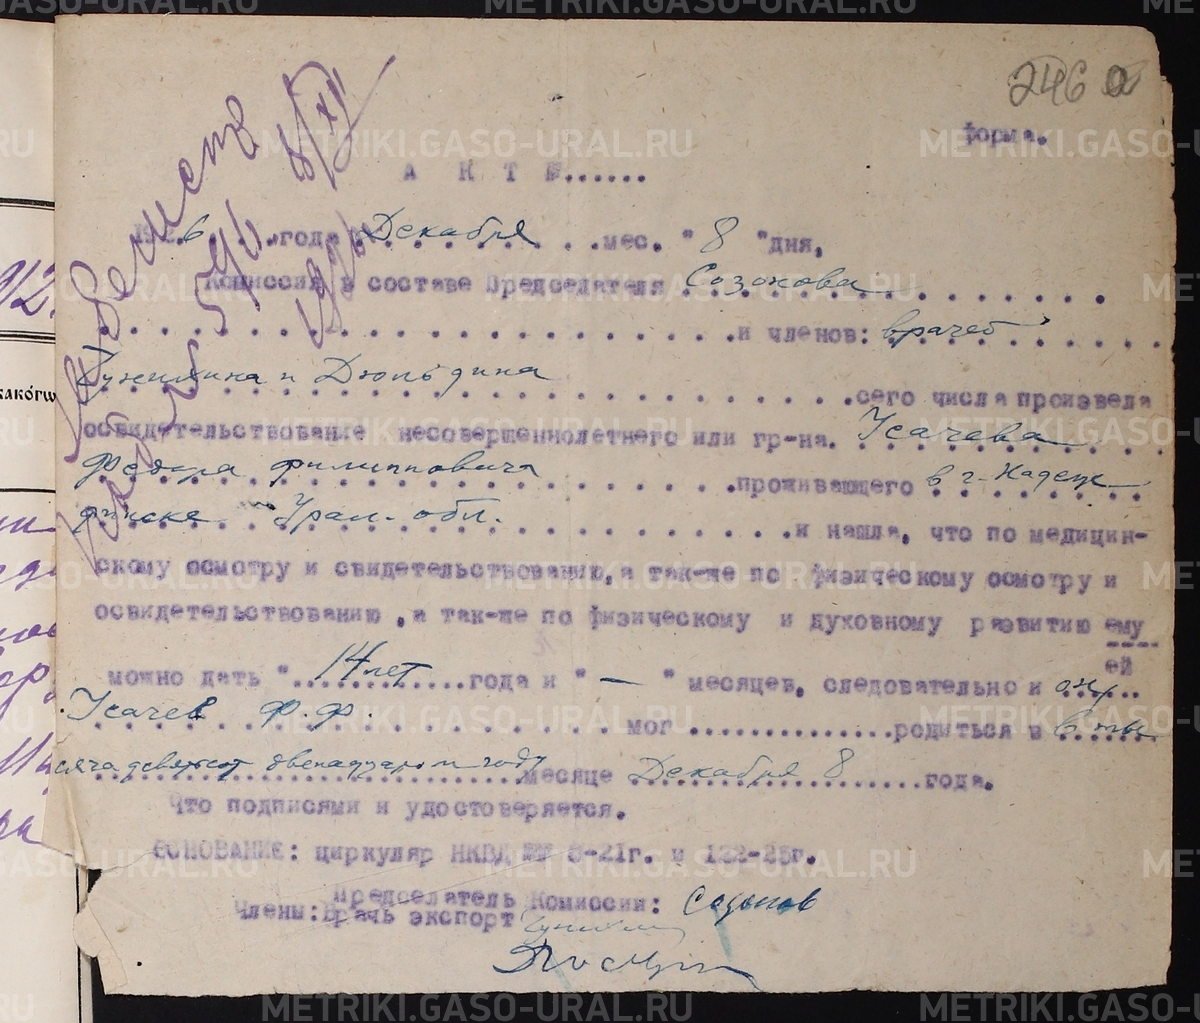 246
форма.
А К Т №......
1926 года Декабря мес. "8" дня,
Комиссия в составе Председателя Созонова
и членов: врачей
и Дюльдина сего числа произвела
освидетельствование несовершеннолетнего или гр-на. Усачева
Федора Филипповича проживающего в г. Надеж-
динске Урал. обл. и нашла, что по медицин-
скому осмотру и свидетельствованию, а так-же по физическому осмотру и
освидетельствованию, а так-же по физическому и духовному развитию ему
ей
можно дать "14 лет года и " — " месяцев, следовательно и он
Усачев Ф.Ф. мог родиться в ты
сяча девятсот двенадцатом году месяце Декабря 8 года.
Что подписями и удостоверяется.
ОСНОВАНИЕ: циркуляр НКВД №№ 8-21г. и 122-25г.
Председатель Комиссии: Созонов
Члены: Врачь экспорт